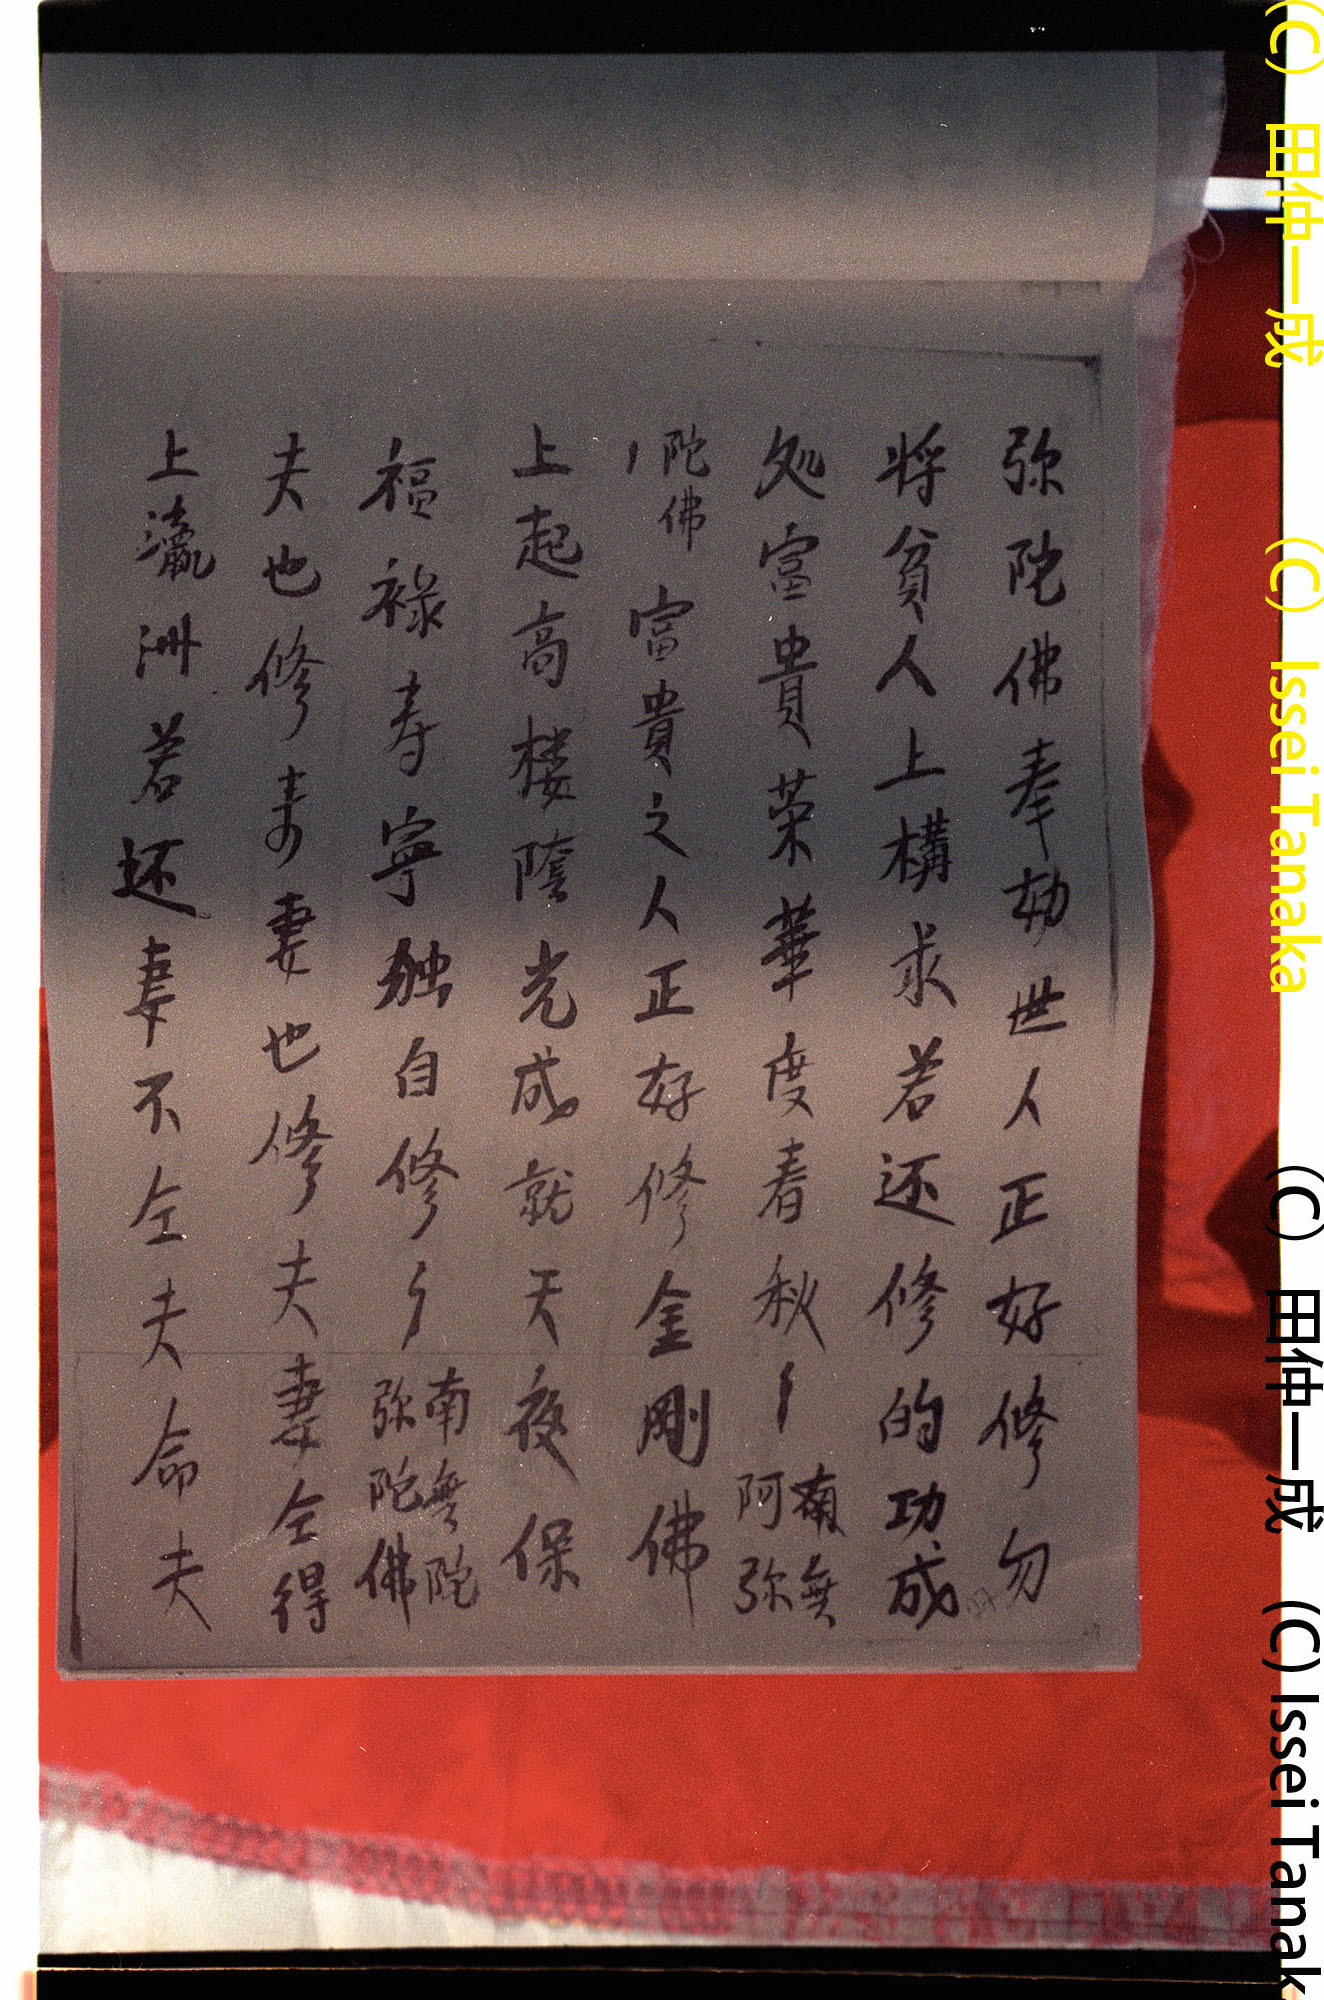 弥陀佛奉劝世人正好修勿
将貧人上構求若还修的功成
处富貴荣華度春秋〻南無阿弥
陀佛 富貴之人正好修金剛佛
上起高楼隂光成就天夜保
福禄寿寜独自修〻南無陀弥陀佛
夫也修来妻也修夫妻仝得
上瀛洲若还妻不仝夫命夫
(C) 田仲一成 (C) Issei Tanaka (C) 田仲一成 (C) Issei Tanak